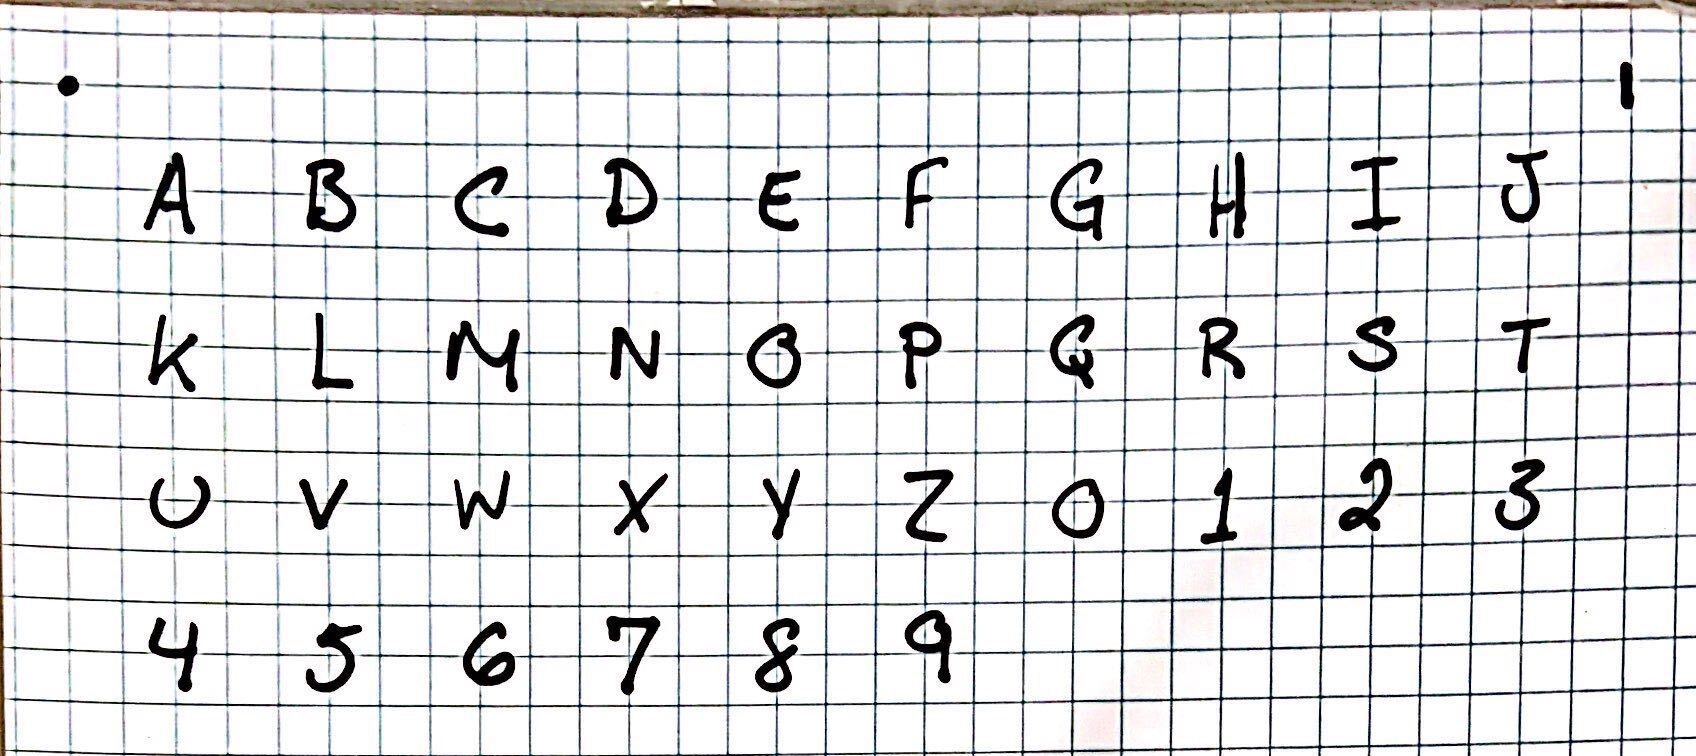 • I
A B C D E F G H I J
K L M N O P Q R S T
U V W X Y Z 0 1 2 3
4 5 6 7 8 9